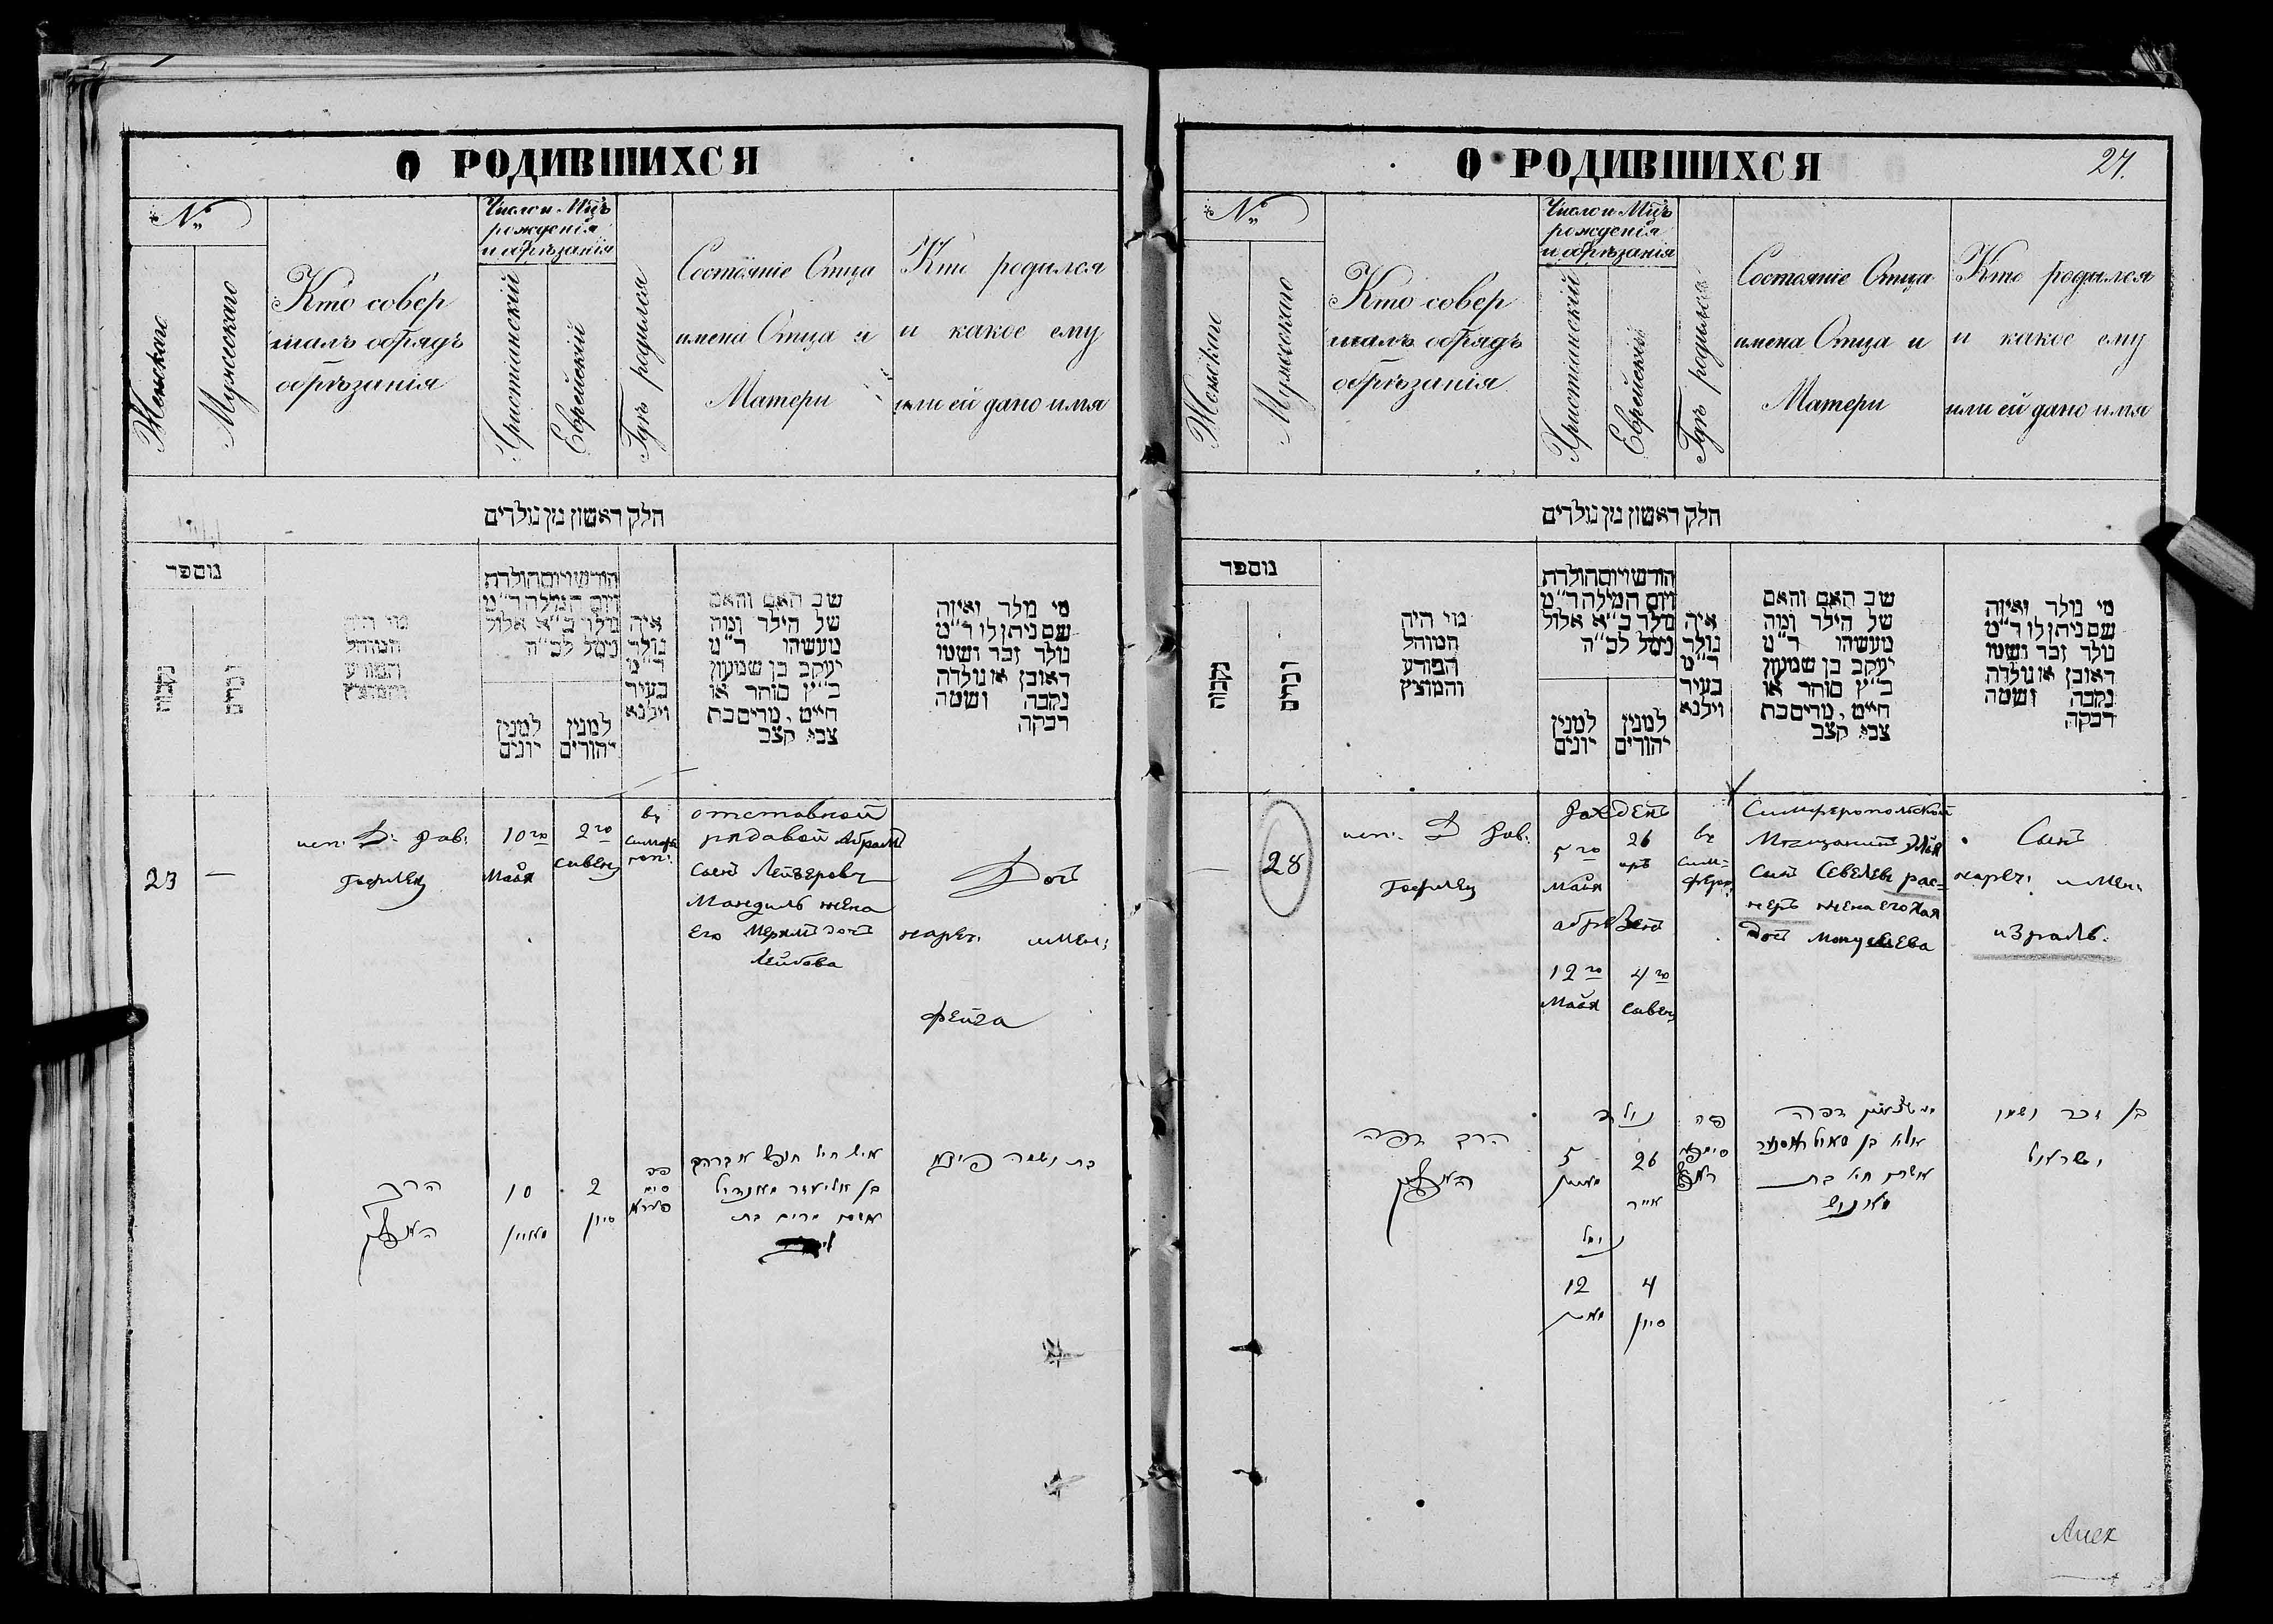 О РОДИВШИХСЯ
№
Женскаго
Мужескаго
Кто совер
шалъ обрядъ
обрѣзанія
Число и Мцъ
рожденія
и обрѣзанія
Христіанскій
Еврейскій
Гдѣ родился
Состояніе Отца
имена Отца и
Матери
Кто родился
и какое ему
или ей дано имя
חלק ראשון מן נולדים
נומספר
מי היה
המוהל
הפורע
והמוצץ
חודש ויום הולדת
ויום המילה ד״מ
נולד ב״א אלול
נימל לב״ה
למנין
יונים
למנין
יהודים
איה
נולד
ד״מ
בעיר
ווילנא
שם האב והאם
של הילד ומה
מעשהו ד״מ
יעקב בן שמעון
כ״ץ סוחר או
חייט, מרים בת
צבי קצב
מי נולד ואיזה
שם ניתן לו ד״מ
נולד זכר ושמו
ראובן או נולדה
נקבה ושמה
רבקה
23
—
исп: Д: рав:
Гофилец
10го
Мая
2го
сивен
въ
симфе
роп:
отставной
рядавой Абрамъ
сынъ Лейзеровъ
Мандиль жена
его Мерымъ дочъ
Лейбова
Дочъ
нареч: имен:
Фейга
הרב
10
מאיי
2
סיון
איש חיל חופש אברהם
בן אליעזר מאנדיל
אשתו מרים בת
בת ושמה פייגא
О РОДИВШИХСЯ
27.
№
Женскаго
Мужескаго
Кто совер
шалъ обрядъ
обрѣзанія
Число и Мцъ
рожденія
и обрѣзанія
Христіанскій
Еврейскій
Гдѣ родился
Состояніе Отца
имена Отца и
Матери
Кто родился
и какое ему
или ей дано имя
חלק ראשון מן נולדים
נומספר
נקבה
זכרים
מי היה
המוהל
הפורע
והמוצץ
חודש ויום הולדת
ויום המילה ד״מ
נולד ב״א אלול
נימל לב״ה
למנין
יונים
למנין
יהודים
איה
נולד
ד״מ
בעיר
ווילנא
שם האב והאם
של הילד ומה
מעשהו ד״מ
יעקב בן שמעון
כ״ץ סוחר או
חייט, מרים בת
צבי קצב
מי נולד ואיזה
שם ניתן לו ד״מ
נולד זכר ושמו
ראובן או נולדה
נקבה ושמה
רבקה
—
28
исп: Д рав:
Гофилец
рожденъ
5го
Мая
26
иръ
абрезенъ
12го
Мая
4го
сивен
въ
сим-
фероп:
Симферопольской
Мещанинъ Элья
сынъ Севелевъ рас=
неръ жена его Хая
дочъ Монушева
Сынъ
нареч: имен:
израиль.
נולד
5
26
אייר
נימל
12
4
סיון
פה
אשתו חיה בת
בן זכר ושמו
ישראל